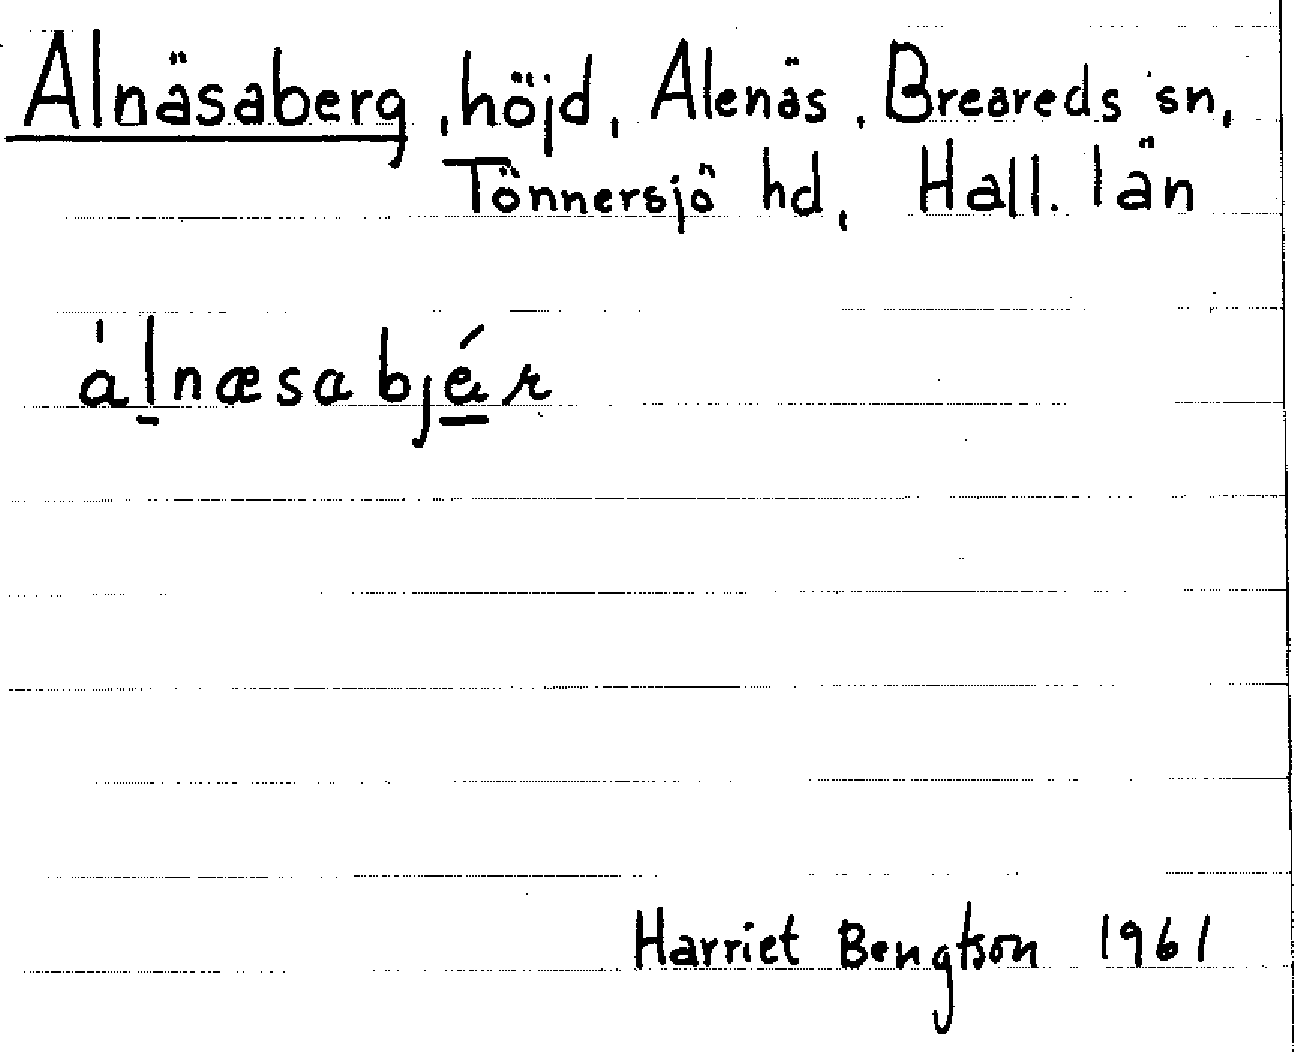 Alnäsaberg, höjd, Alenäs, Breareds sn,
Tönnersjö hd, Hall. län
álnæsabjǽr
Harriet Bengtson 1961